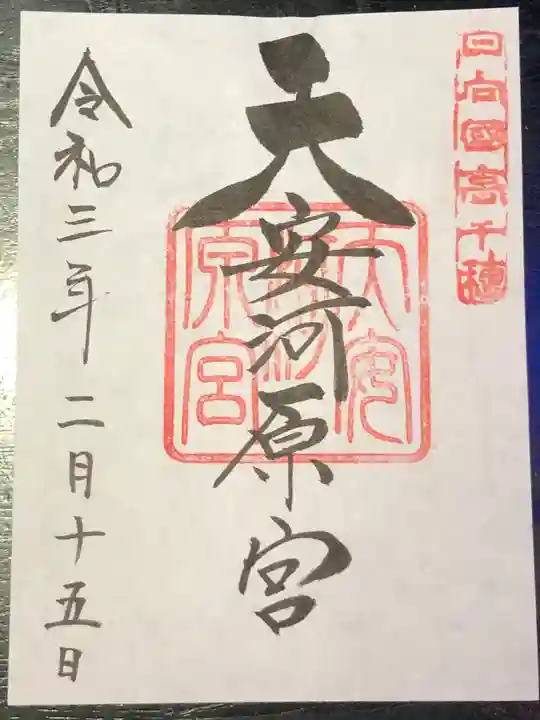 日向國高千穗
天安河原宮
天安河原宮
令和三年二月十五日